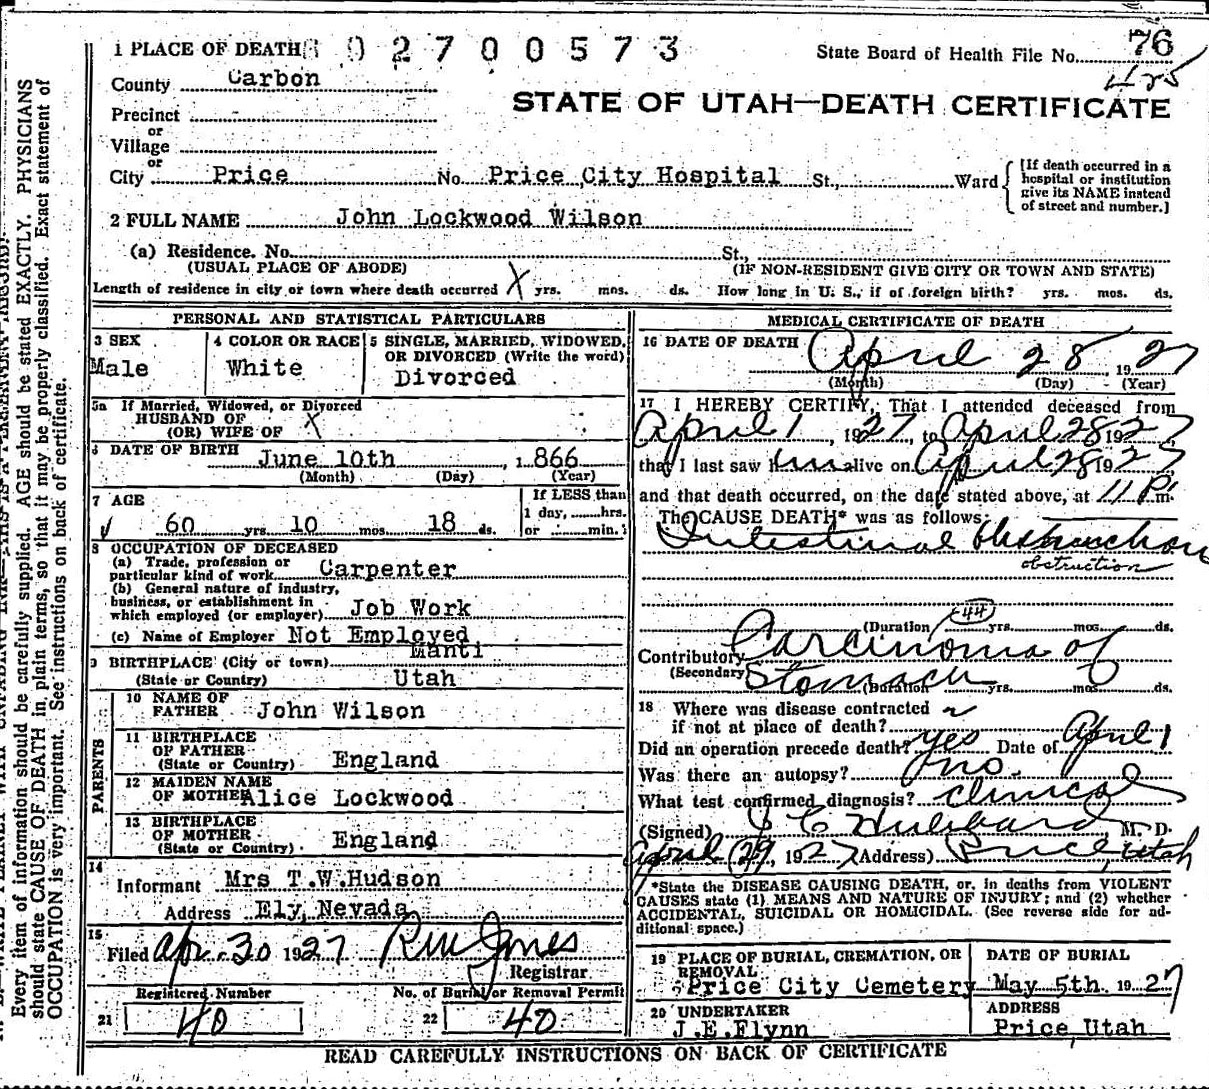 1 PLACE OF DEATH 02700573
State Board of Health File No. 76
425
County Carbon
STATE OF UTAH—DEATH CERTIFICATE
Precinct
or
Village
or
City Price No. Price City Hospital St., Ward
[If death occurred in a hospital or institution give its NAME instead of street and number.]
2 FULL NAME John Lockwood Wilson
(a) Residence. No. St.,
(USUAL PLACE OF ABODE) (IF NON-RESIDENT GIVE CITY OR TOWN AND STATE)
Length of residence in city or town where death occurred X yrs. mos. ds. How long in U. S., if of foreign birth? yrs. mos. ds.
PERSONAL AND STATISTICAL PARTICULARS
3 SEX
Male
4 COLOR OR RACE
White
5 SINGLE, MARRIED, WIDOWED, OR DIVORCED (Write the word)
Divorced
5a If Married, Widowed, or Divorced
HUSBAND OF
(OR) WIFE OF X
6 DATE OF BIRTH June 10th, 1866
(Month) (Day) (Year)
7 AGE
60 yrs. 10 mos. 18 ds.
If LESS than
1 day, hrs.
or min.
8 OCCUPATION OF DECEASED
(a) Trade, profession or
particular kind of work Carpenter
(b) General nature of industry,
business, or establishment in
which employed (or employer) Job Work
(c) Name of Employer Not Employed
9 BIRTHPLACE (City or town) Manti
(State or Country) Utah
PARENTS
10 NAME OF
FATHER John Wilson
11 BIRTHPLACE
OF FATHER
(State or Country) England
12 MAIDEN NAME
OF MOTHER Alice Lockwood
13 BIRTHPLACE
OF MOTHER
(State or Country) England
14
Informant Mrs T.W.Hudson
Address Ely, Nevada
15
Filed Apr. 30 1927
Registrar
Registered Number
21 40
No. of Burial or Removal Permit
22 40
MEDICAL CERTIFICATE OF DEATH
16 DATE OF DEATH April 28, 1927
(Month) (Day) (Year)
17 I HEREBY CERTIFY, That I attended deceased from
April 1, 1927, to April 28 1927,
that I last saw him alive on April 28 1927
and that death occurred, on the date stated above, at 11 P.m.
The CAUSE DEATH* was as follows:
Intestinal Obstruction
obstruction
44
(Duration) yrs. mos. ds.
Contributory Carcinoma of
(Secondary) Stomach (Duration yrs. mos. ds.
18 Where was disease contracted
if not at place of death?
Did an operation precede death? yes Date of April 1
Was there an autopsy? no.
What test confirmed diagnosis? clinical
(Signed) J C Hubbard, M. D.
April 29, 1927 (Address) Price, Utah
*State the DISEASE CAUSING DEATH, or, in deaths from VIOLENT
CAUSES state (1) MEANS AND NATURE OF INJURY; and (2) whether
ACCIDENTAL, SUICIDAL OR HOMICIDAL. (See reverse side for ad-
ditional space.)
19 PLACE OF BURIAL, CREMATION, OR
REMOVAL
Price City Cemetery
DATE OF BURIAL
May 5th. 1927
20 UNDERTAKER
J.E.Flynn
ADDRESS
Price, Utah
READ CAREFULLY INSTRUCTIONS ON BACK OF CERTIFICATE
Every item of information should be carefully supplied. AGE should be stated EXACTLY. PHYSICIANS
should state CAUSE OF DEATH in plain terms, so that it may be properly classified. Exact statement of
OCCUPATION is very important. See instructions on back of certificate.